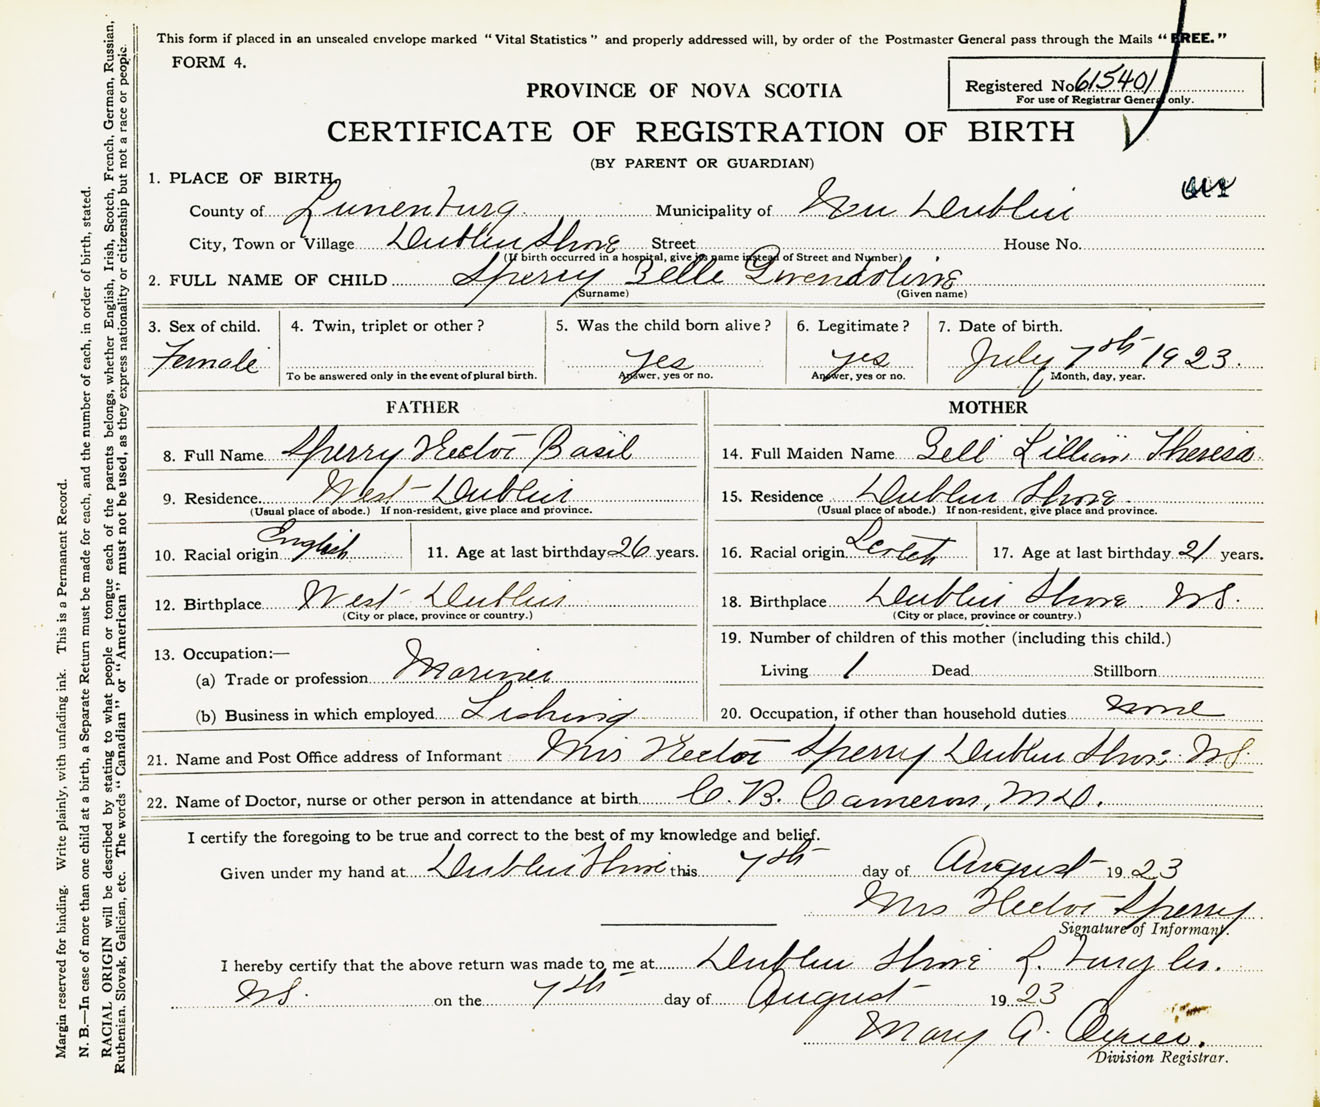 This form if placed in an unsealed envelope marked "Vital Statistics" and properly addressed will, by order of the Postmaster General pass through the Mails "FREE."
FORM 4.
Registered No. 615401
For use of Registrar General only.
PROVINCE OF NOVA SCOTIA
CERTIFICATE OF REGISTRATION OF BIRTH
(BY PARENT OR GUARDIAN)
1. PLACE OF BIRTH,
County of Lunenburg Municipality of New Dublin
City, Town or Village Dublin Shore Street House No.
(If birth occurred in a hospital, give its name instead of Street and Number)
2. FULL NAME OF CHILD Sperry Belle Gwendoline
(Surname) (Given name)
3. Sex of child. 4. Twin, triplet or other? 5. Was the child born alive? 6. Legitimate? 7. Date of birth.
Female yes yes July 7th 1923.
To be answered only in the event of plural birth. Answer, yes or no. Answer, yes or no. Month, day, year.
FATHER MOTHER
8. Full Name Sperry Hector Basil 14. Full Maiden Name Bell Lillian Theresa
9. Residence West Dublin 15. Residence Dublin Shore.
(Usual place of abode.) If non-resident, give place and province. (Usual place of abode.) If non-resident, give place and province.
10. Racial origin English 11. Age at last birthday 26 years. 16. Racial origin Scotch 17. Age at last birthday 21 years.
12. Birthplace West Dublin 18. Birthplace Dublin Shore NS.
(City or place, province or country.) (City or place, province or country.)
19. Number of children of this mother (including this child.)
13. Occupation:—
(a) Trade or profession Mariner Living 1 Dead Stillborn
(b) Business in which employed Fishing 20. Occupation, if other than household duties none
21. Name and Post Office address of Informant Mrs Hector Sperry Dublin Shore NS
22. Name of Doctor, nurse or other person in attendance at birth C. B. Cameron, M.D.
I certify the foregoing to be true and correct to the best of my knowledge and belief.
Given under my hand at Dublin Shore this 7th day of August 1923
Mrs Hector Sperry
Signature of Informant.
I hereby certify that the above return was made to me at Dublin Shore
NS. on the 7th day of August 1923
Mary A.
Division Registrar.
Margin reserved for binding. Write plainly, with unfading ink. This is a Permanent Record.
N. B.—In case of more than one child at a birth, a Separate Return must be made for each, and the number of each, in order of birth, stated.
RACIAL ORIGIN will be described by stating to what people or tongue each of the parents belongs, whether English, Irish, Scotch, French, German, Russian,
Ruthenian, Slovak, Galician, etc. The words "Canadian" or "American" must not be used, as they express nationality or citizenship but not a race or people.